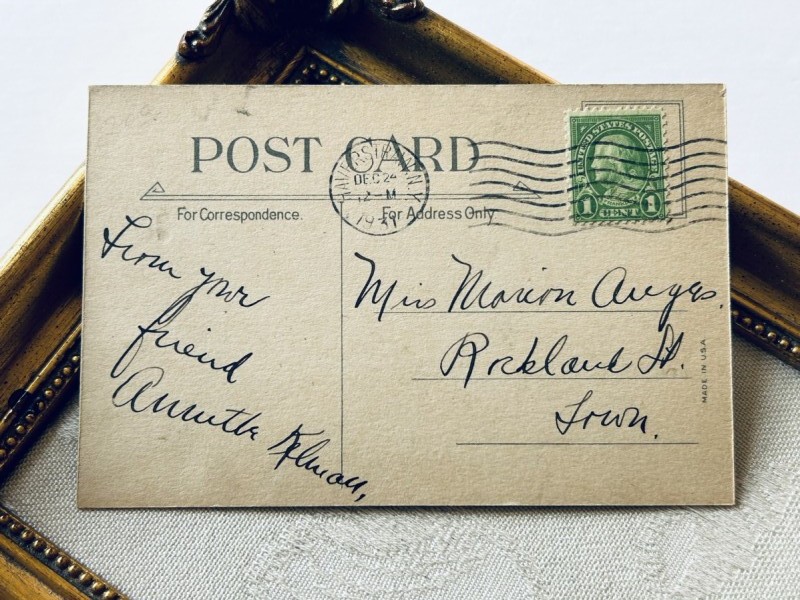 POST CARD
HAVERSTRAW, N.Y.
DEC 24
12 - M
1931
UNITED STATES POSTAGE
1 CENT 1
For Correspondence.
For Address Only
From your
friend
Annette
Miss Marion
Rockland St.
Town.
MADE IN U.S.A.